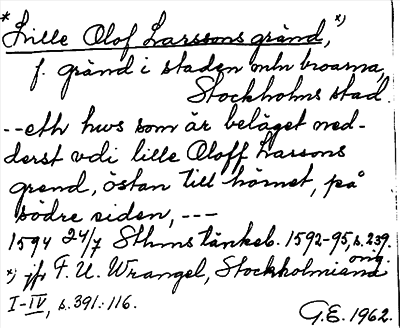 * Lille Olof Larssons gränd, *)
f. gränd i staden mln broarna,
Stockholms stad.
--eth hws som är beläget ned-
derst vdi lille Oloff Lassons
grend, östan till hörnet, på
södre siden, ---
1594 24/7 Sthms tänkeb. 1592-95, s. 239.
orig.
*) jfr F. U. Wrangel, Stockholmiana
I-IV, s. 391: 116.
G.E. 1962.